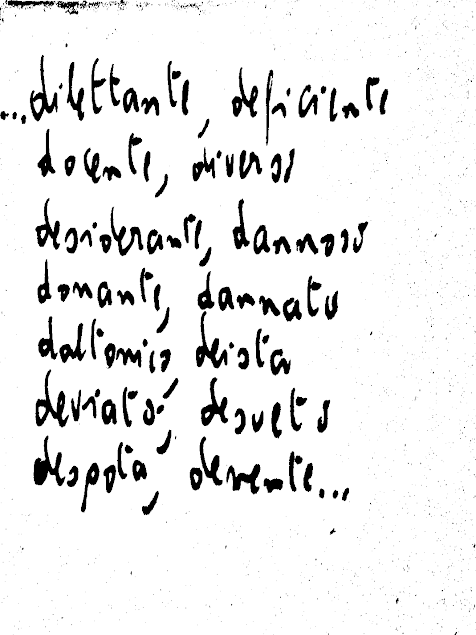 ...dilettante, deficiente
docente, diverso
desiderante, dannoso
donante, dannato
daltonico, deista
deviato, desueto
despota, demente...